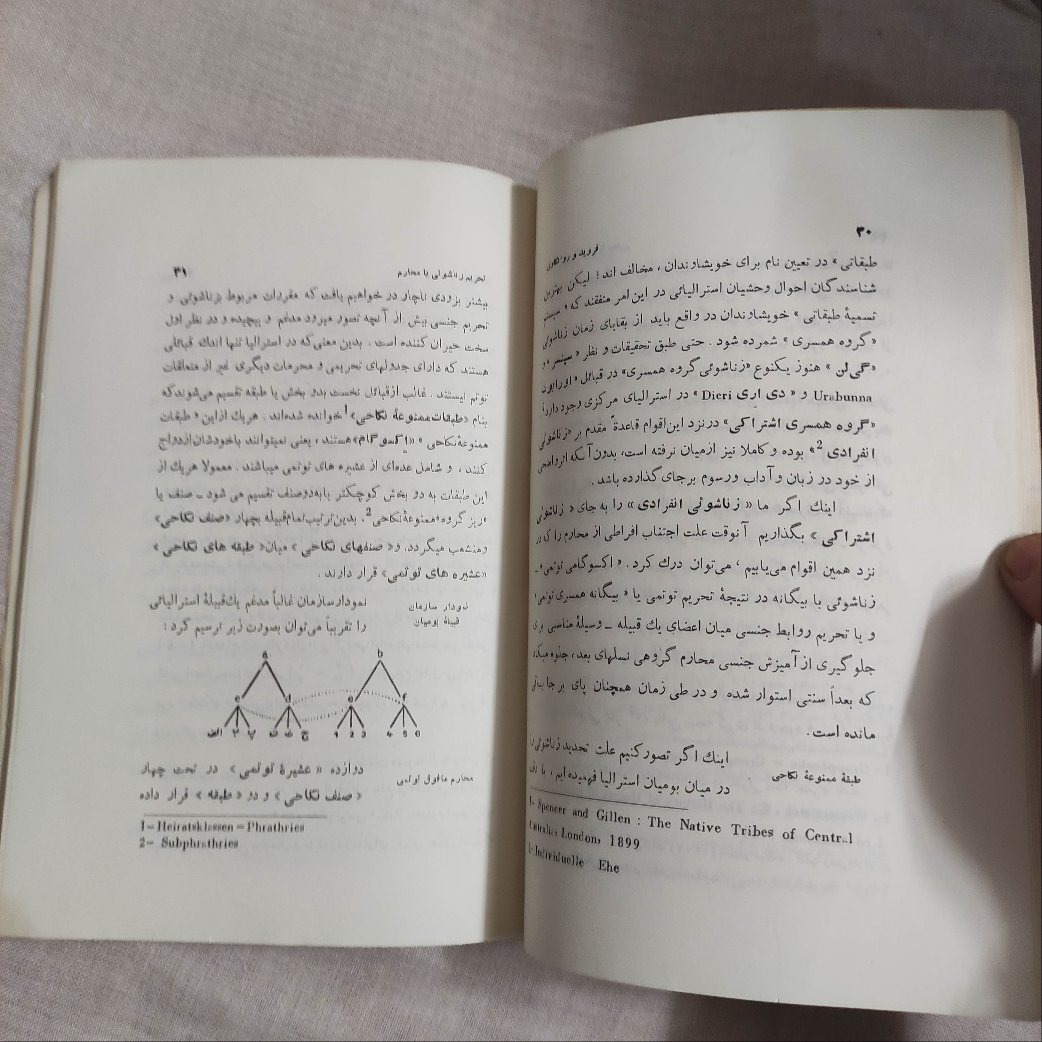 ۳۰
فروید و
طبقاتی» در تعیین نام برای خویشاوندان ، مخالف اند؛ لیکن بهترین
شناسندگان احوال وحشیان استرالیائی در این امر متفقند که «سیستم
تسمیهٔ طبقاتی» خویشاوندان در واقع باید از بقایای زمان زناشوئی
«گروه همسری» شمرده شود . حتی طبق تحقیقات و نظر «سپنسر» و
«گی‌لن» هنوز یکنوع «زناشوئی گروه همسری» در قبائل
Urabunna و «دی اری Dieri» در استرالیای مرکزی وجود دارد
«گروه همسری اشتراکی» درنزد این‌اقوام قاعدةً مقدم بر «زناشوئی
انفرادی 2» بوده و کاملا نیز ازمیان نرفته است، بدون آنکه اثرواضحی
از خود در زبان و آداب ورسوم برجای گذارده باشد .
اینك اگر ما «زناشوئی انفرادی» را به جای «زناشوئی
اشتراکی» بگذاریم آنوقت علت اجتناب افراطی از محارم را که در
نزد همین اقوام می‌یابیم ، می‌توان درك کرد . «اکسوگامی توتمی» ـ
زناشوئی با بیگانه در نتیجهٔ تحریم توتمی یا «بیگانه همسری توتمی»
و یا تحریم روابط جنسی میان اعضای یك قبیله ـ وسیلهٔ مناسبی برای
جلوگیری از آمیزش جنسی محارم گروهی نسلهای بعد ، جلوه میکند
که بعداً سنتی استوار شده و در طی زمان همچنان پای برجا باقی
مانده است .
اینك اگر تصور کنیم علت تحدید زناشوئی را
طبقهٔ ممنوعهٔ نکاحی
در میان بومیان استرالیا فهمیده ایم ، با
1- Spencer and Gillen : The Native Tribes of Central
London, 1899
2- Individuelle Ehe
تحریم زناشوئی با محارم
۳۱
بیشتر بزودی ناچار در خواهیم یافت که مقررات مربوط بزناشوئی و
تحریم جنسی بیش از آنچه تصور میرود مدغم و پیچیده و در نظر اول
سخت حیران کننده است . بدین معنی‌که در استرالیا تنها اندك قبائلی
هستند که دارای جدولهای تحریمی و محرمات دیگری غیر از متعلقات
توتم نیستند . غالب ازقبائل نخست بدو بخش یا طبقه تقسیم می‌شوندکه
بنام «طبقات ممنوعهٔ نکاحی»1 خوانده شده‌اند . هریك ازاین «طبقات
ممنوعهٔ نکاحی» «اکسوگام» هستند ، یعنی نمیتوانند باخودشان‌ازدواج
کنند ، و شامل عده‌ای از عشیره های توتمی میباشند . معمولا هریك از
این طبقات به دو بخش کوچکتر یابه‌دوصنف تقسیم می شود ـ صنف یا
«زیر گروه» ممنوعهٔ نکاحی2. بدین‌ترتیب‌تمام‌قبیله بچهار «صنف نکاحی»
ومنشعب میگردد. و«صنفهای نکاحی» میان «طبقه های نکاحی»
«عشیره های توتمی» قرار دارند .
نمودار سازمان
قبیلهٔ بومیان
نمودارسازمان غالباً مدغم یك‌قبیلهٔ استرالیائی
را تقریباً می‌توان بصورت زیر ترسیم کرد :
a b
c d e f
الف ۲ پ ت ث ج 1 2 3 4 5 6
دوازده «عشیرهٔ توتمی» در تحت چهار
محارم مافوق توتمی
«صنف نکاحی» و دو «طبقه» قرار داده
1- Heiratsklassen = Phrathries
2- Subphrathries